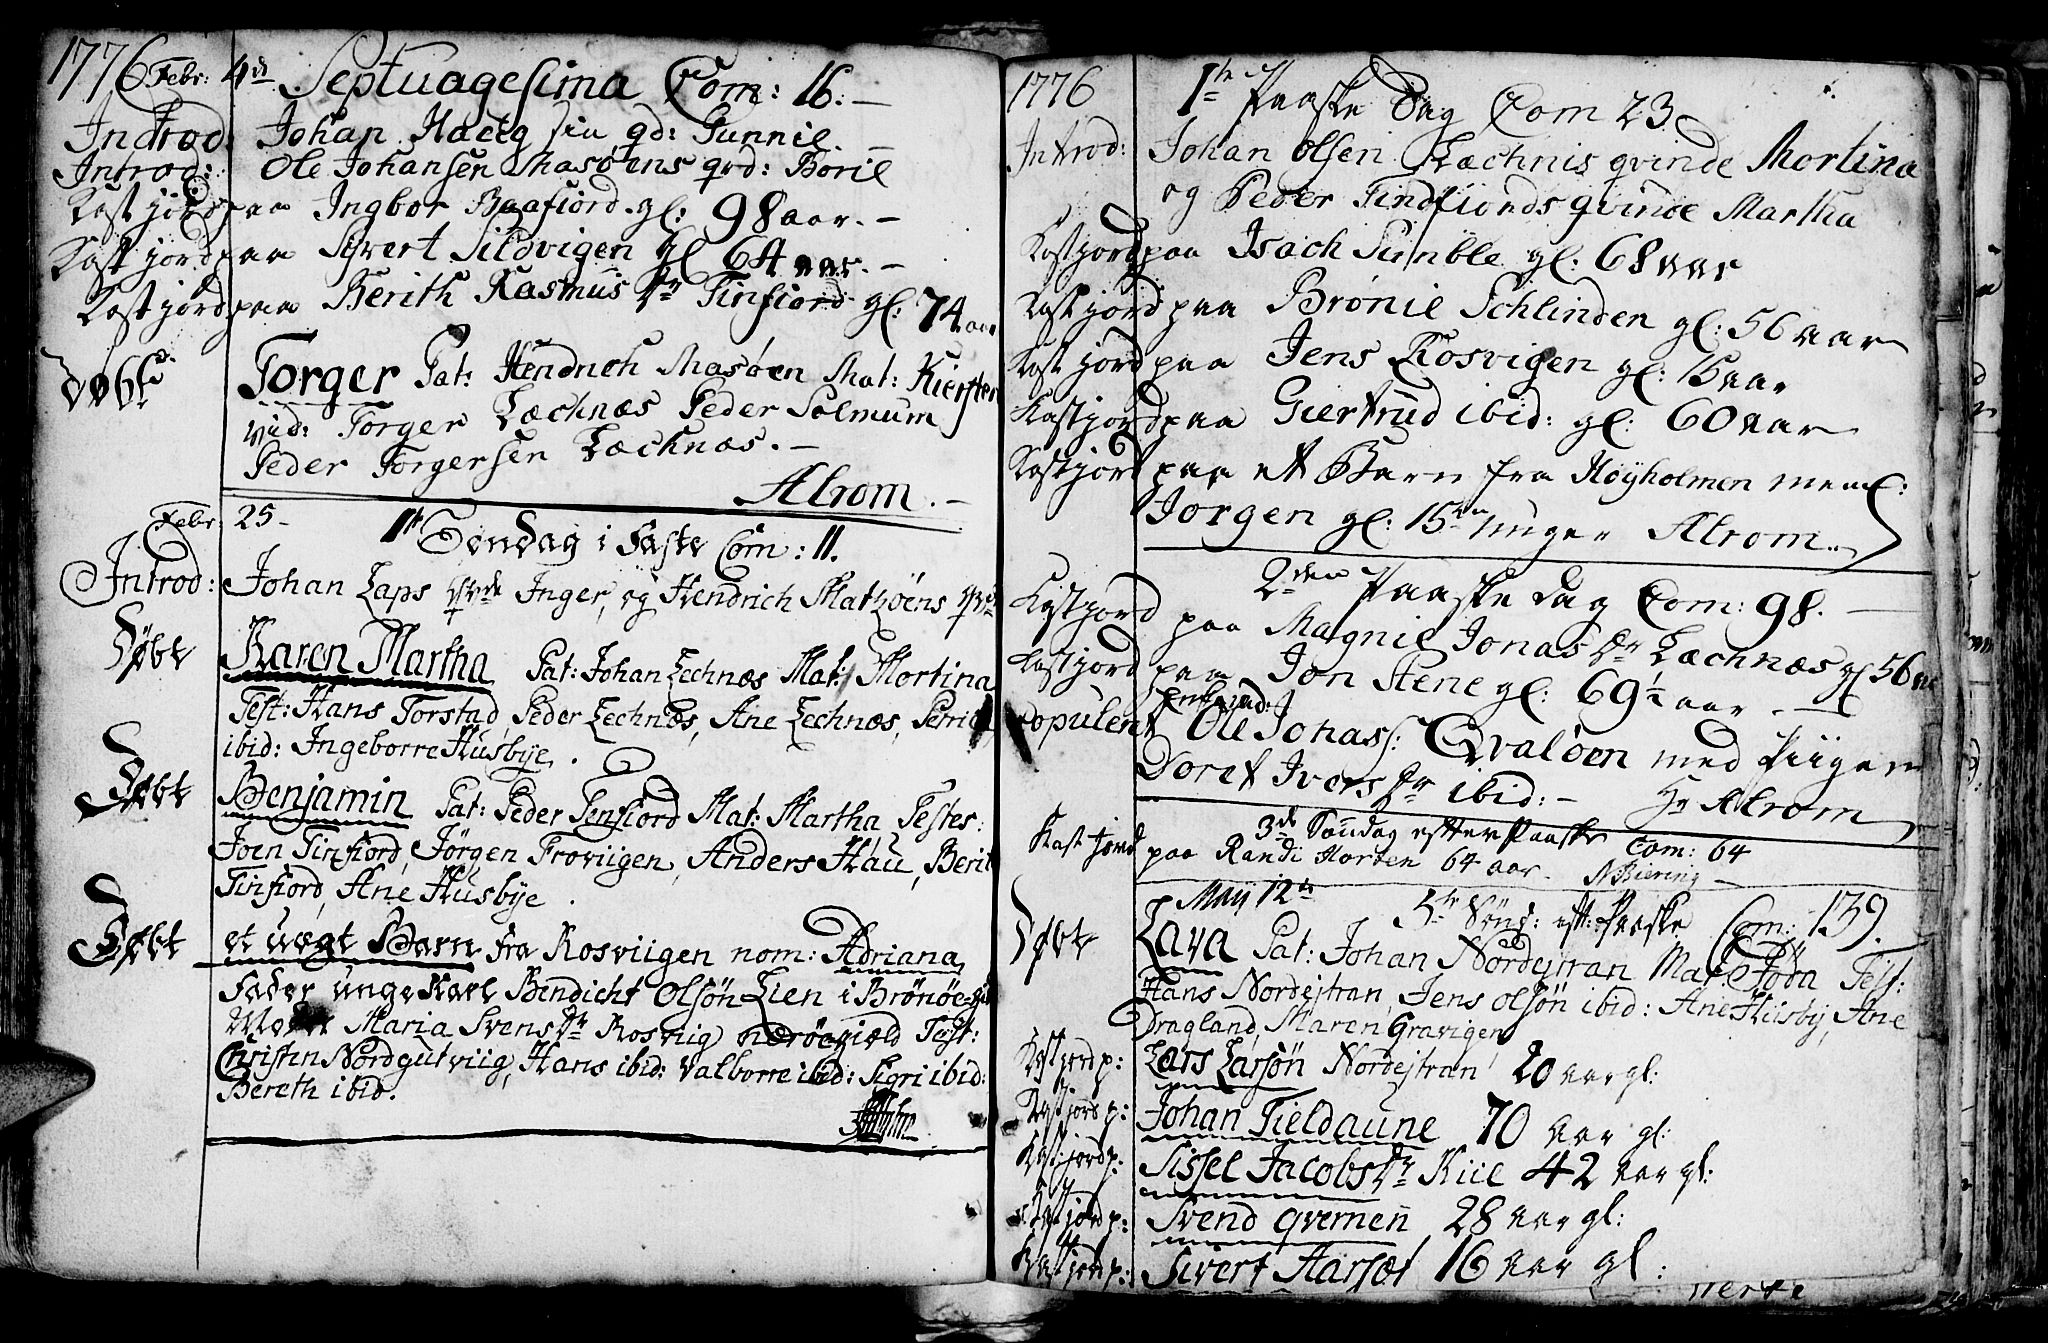 1776 Febr: 4de Septuagesima Com: 16.
Introd: Johan Haug sin qd: Gunnil.
Introd: Ole Johansen Masøens qvd: Boril
Kast jord paa Ingbor Baafiord gl: 98 aar.
Kast jord paa Sivert Sildvigen gl 64 aar.
Kast jord paa Berith Rasmus Dr Finfiord gl: 74 aar
Døbt Torger Pat: Hendrich Masøen Mat: Kiersten
vid: Torger Læchnæs Peder Solmum
Peder Torgersen Læchnæs.
Alrom.
Febr: 25 1te Søndag i Faste Com: 11.
Introd: Johan Laps qvde Inger, og Hendrich Matzøens qvd
Døbt Karen Martha Pat: Johan Lechnæs Mat: Mortina
Test: Hans Torstad, Peder Lechnæs, Ane Lechnæs,
ibid: Ingeborre Husbye.
Døbt Benjamin Pat: Peder Finfiord Mat: Martha Testes:
Joen Finfiord, Jørgen Froviigen, Anders Hau, Berit
Finfiord, Ane Husbye.
Døbt et uægt Barn fra Rosviigen nom: Adriana
Fader unge Karl Bendicht Olsøn Lien i Brønøe
Moder Maria Svens Dr Rosviig Test:
Christen Nordgutviig, Hans ibid: Valborre ibid: Sigri ibid:
Bereth ibid.
1776 1te Paaske Dag Com 23
Introd: Johan Olsen Læchnis qvinde Mortina
og Peder Findfiords qvinde Martha
Kast jord paa Isach Sumble gl: 68 aar
Kast jord paa Brønil Schlinden gl: 56 aar
Kast jord paa Jens Rosvigen gl: 15 aar
Kast jord paa Giertrud ibid: gl: 60 aar
Kast jord paa et Barn fra Høyholmen
Jorgen gl: 15 uger Alrom.
2den Paaske dag Com: 98.
Kast jord paa Magnil Jonas Dr Læchnæs gl 56 aar
Kast jord paa Jon Stene gl: 69½ aar.
Copuleret Ole Jonass: Qvaløen med Piigen
Doret Ivers Dr ibid: Hr Alrom
3de Søndag efter Paaske Com: 64
Kast jord paa Randi Horten 64 aar. N Biering
May 12te 5te Sønd: eft: Paaske Com: 139.
Døbt Lava Pat: Johan Nordejtran Mat: Toda Test:
Hans Nordejtran, Jens Olsøn ibid: Ane Husby, Ane
Dragland, Maren Gravigen
Kast jord p: Lars Larsøn Nordejtran 20 aar gl:
Kast jord p: Johan Fieldaune 70 aar gl:
Kast jord p: Sissel Jacobs Dr Kiil 42 aar gl:
Kast jord p: Svend Qvernen 28 aar gl:
Kast jord p: Sivert Aarsæt 16 aar gl: